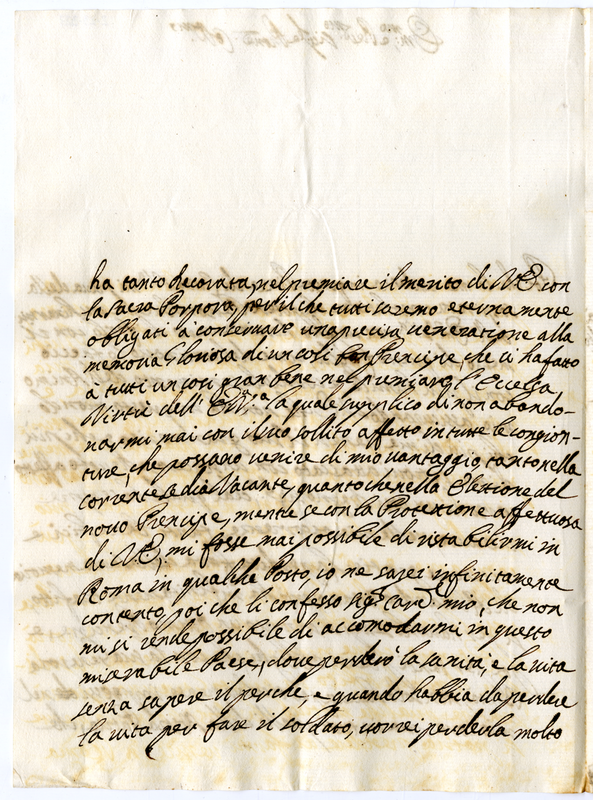 ha tanto decorata, nel premiare il merito di V.E. con
la sacra Porpora, per il che tutti saremo eternamente
obligati à conservare una precisa veneratione alla
memoria Gloriosa di un così Prencipe, che ci ha fatto
à tutti un così gran bene nel premiare l'Eccelsa
Virtù dell' la quale supplico di non abando-
narmi mai con il suo sollito affetto in tutte le congion-
ture, che possano venire di mio vantaggio, tanto nella
corrente sedia Vacante, quanto che nella Elezione del
novo Prencipe, mentre se con la Protezione affettuosa
di V.E. mi fosse mai possibile di ristabilirmi in
Roma in qualche Posto, io ne sarei infinitamente
contento, poi che li confesso Sigr Card. mio, che non
mi si rende possibile di accomodarmi in questo
miserabile Paese, dove perderò la sanità, e la vita
senza sapere il perche, e quando habbia da perdere
la vita per fare il soldato, vorrei perderla molto